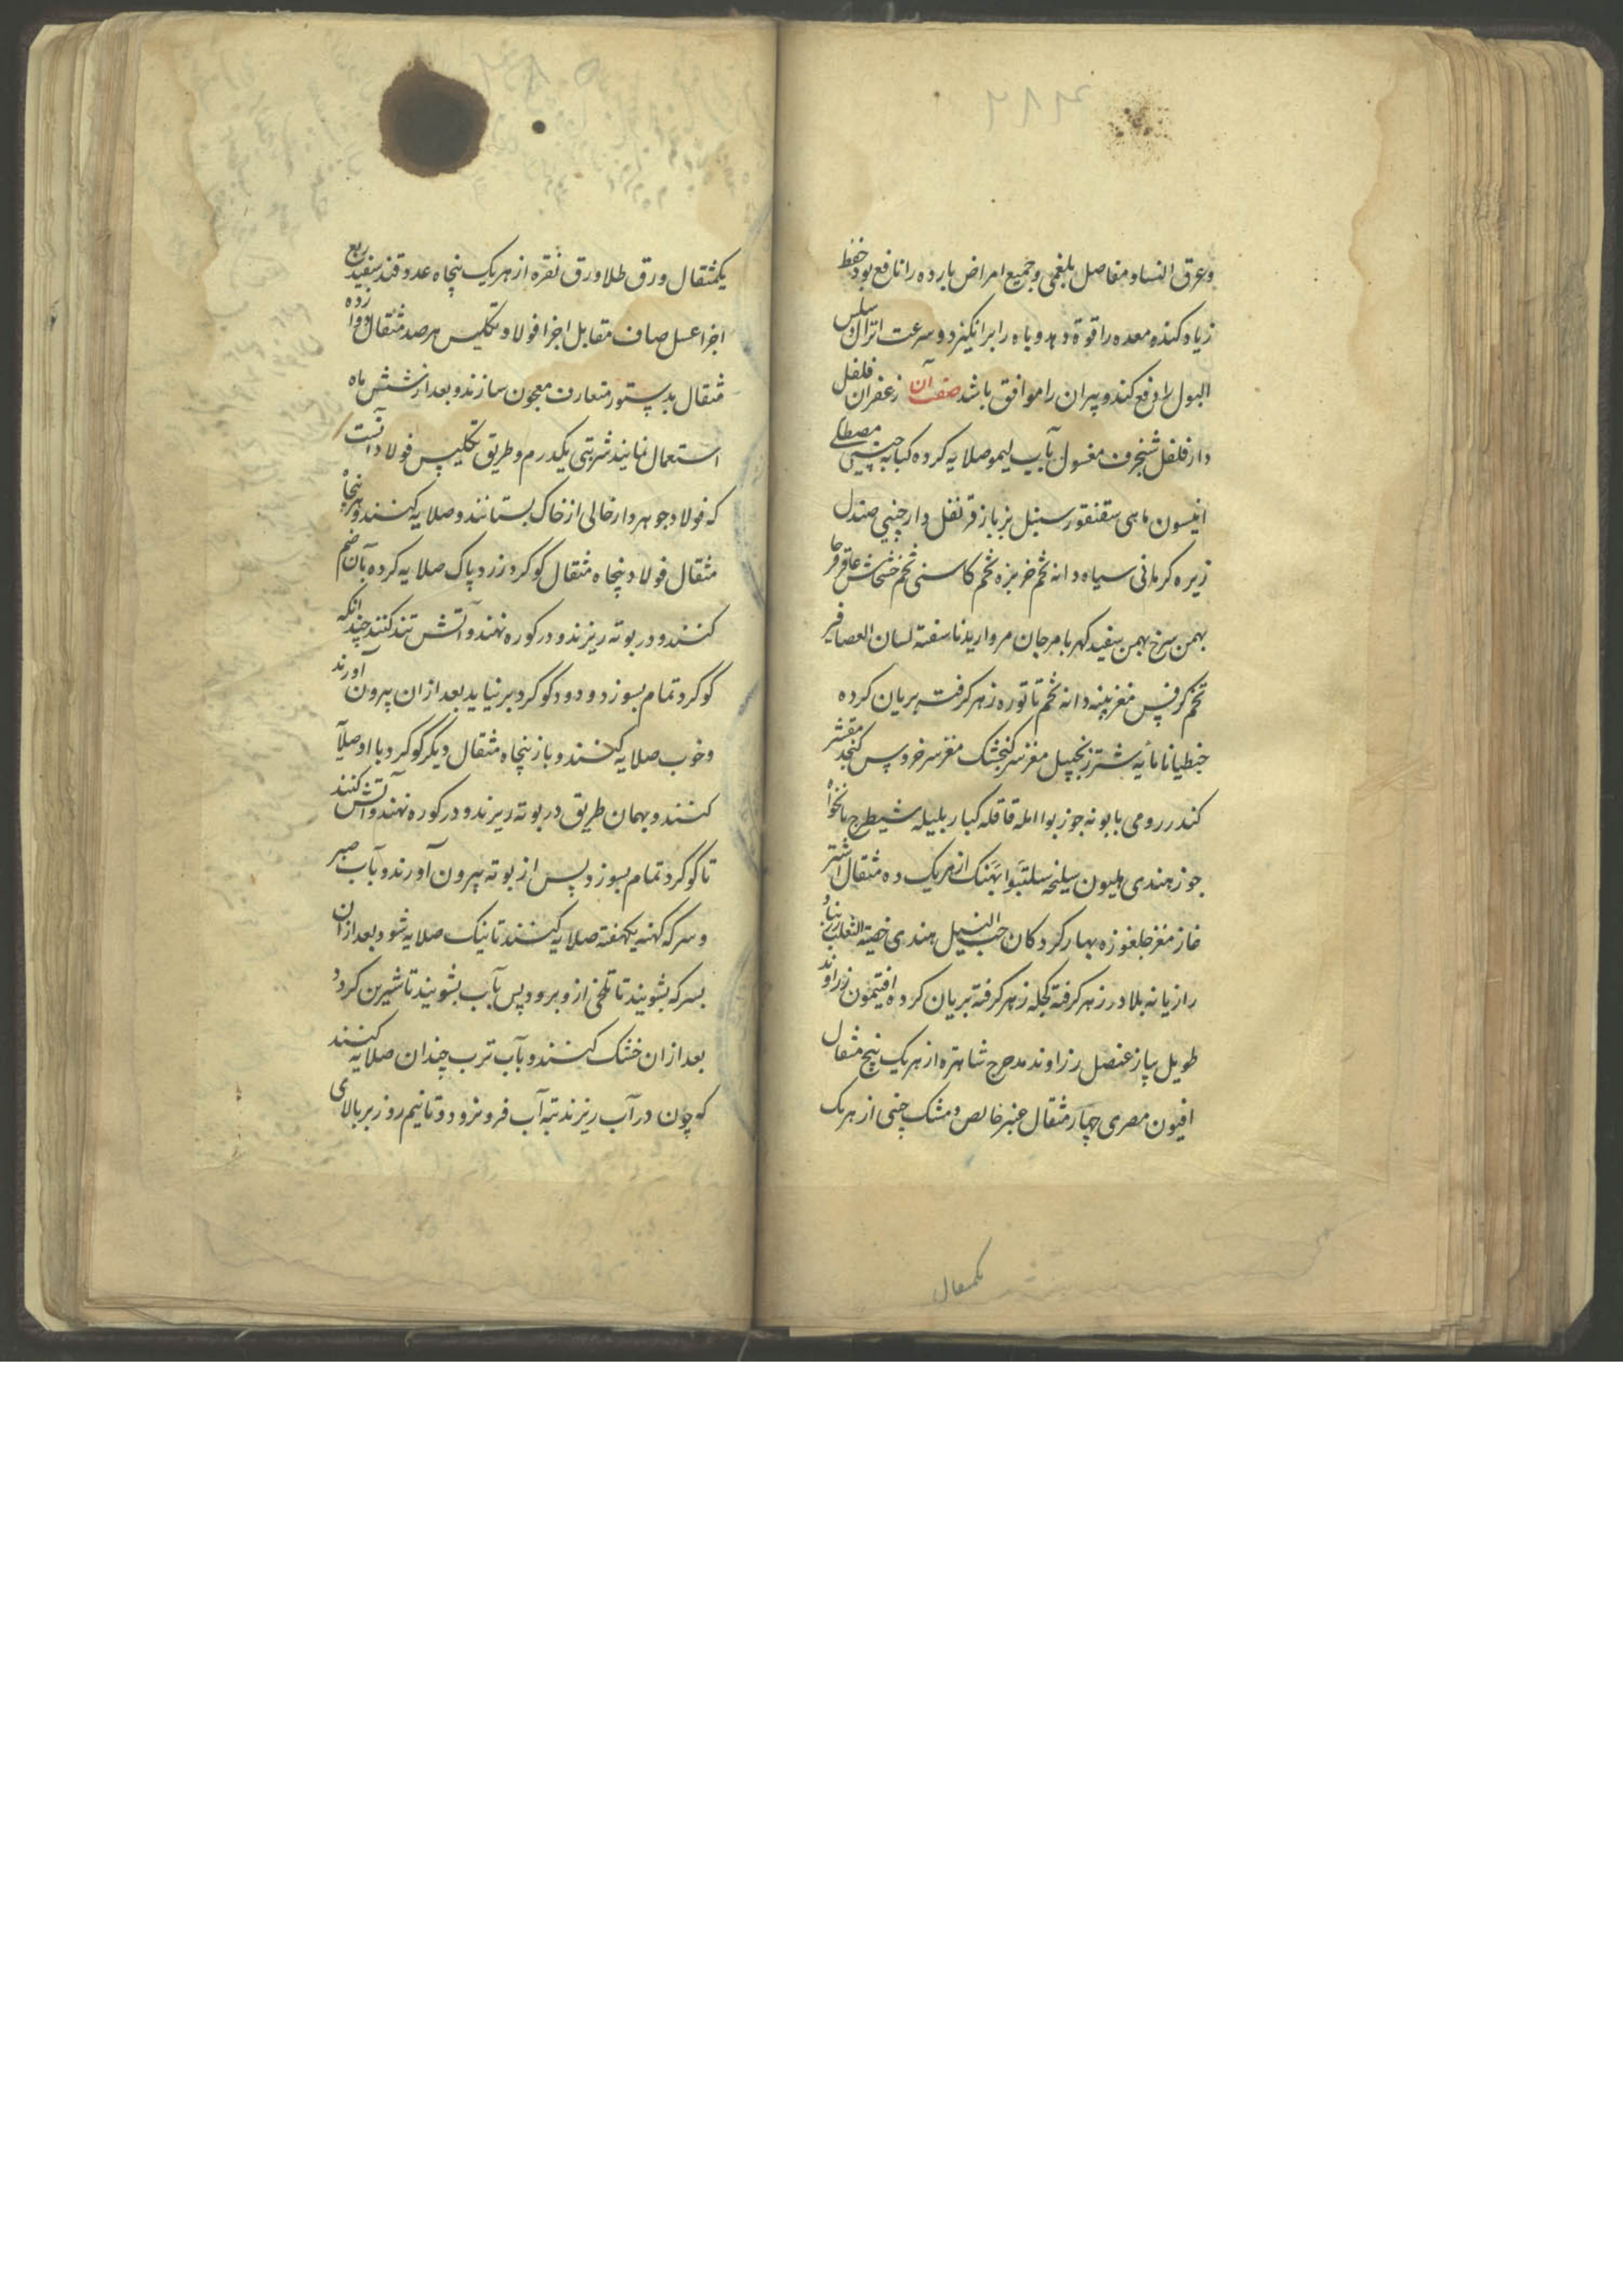 ۲۸۴
وعرق النسا و مفاصل بلغمی و جمیع امراض بارده را نافع بود حفظ
زیاده کند معده را قوة دهد و باه را برانگیزد و سرعت انزال و سلس
البول را دفع کند و پیران را موافق باشد صفت آن زعفران فلفل
دارفلفل شنجرف مغسول بآب لیمو صلایه کرده کبابه چینی مصطکی
انیسون ماهی سقنقور سنبل بزباز قرنفل دارچینی صندل
زیره کرمانی سیاه دانه تخم خربزه تخم کاسنی تخم خشخاش عاقرقرحا
بهمن سرخ بهمن سفید کهربا مرجان مروارید ناسفته لسان العصافیر
تخم کرفس مغز پنبه دانه تخم تاتوره زهر کرفته بریان کرده
جنطیانا مایه شتر زنجبیل مغز سر کنجشک مغز سر خروس کنجد مقشر
کندر رومی بابونه جوزبوا امله قاقله کبار بلیله شیطرج نانخواه
جوز هندی هلیون سلیخه بهنک از هریک ده مثقال اشتر
غاز مغز جلغوزه بهار کردکان حب النیل هندی خصیة الثعلب زرنباد
رازیانه بلادر زهر کرفته کچله زهر کرفته بریان کرده افتیمون زراوند
طویل پیاز عنصل زراوند مدحرج شاهتره از هریک پنج مثقال
افیون مصری چهار مثقال عنبر خالص و مشک چینی از هریک
یکمثقال
۲۸۵
یکمثقال ورق طلا ورق نقره از هریک پنجاه عدد قند سفید ربع
اجزا عسل صاف مقابل اجزا فولاد تکلیس هر صد مثقال دوا ده
مثقال بدستور متعارف معجون سازند و بعد از شش ماه
استعمال نمایند شربتی یکدرم و طریق تکلیس فولاد آنست
که فولاد جوهردار خالی از خاک بستانند و صلایه کنند و هر پنجاه
مثقال فولاد پنجاه مثقال کوکرد زرد پاک صلایه کرده بآن ضم
کنند و در بوته ریزند و در کوره نهند و آتش تند کنند چندانکه
کوکرد تمام بسوزد و دود کوکرد برنیاید بعد از ان بیرون آورند
و خوب صلایه کنند و باز پنجاه مثقال دیگر کوکرد با او صلایه
کنند و بهمان طریق در بوته ریزند و در کوره نهند و آتش کنند
تا کوکرد تمام بسوزد پس از بوته بیرون آورند و بآب صبر
و سرکه کهنه یکهفته صلایه کنند تا نیک صلایه شود بعد از ان
بسرکه بشویند تا تلخی از و برود پس بآب بشویند تا شیرین کردد
بعد از ان خشک کنند و بآب ترب چندان صلایه کنند
که چون در آب ریزند بته آب فرو نرود و تا نیم روز بر بالای